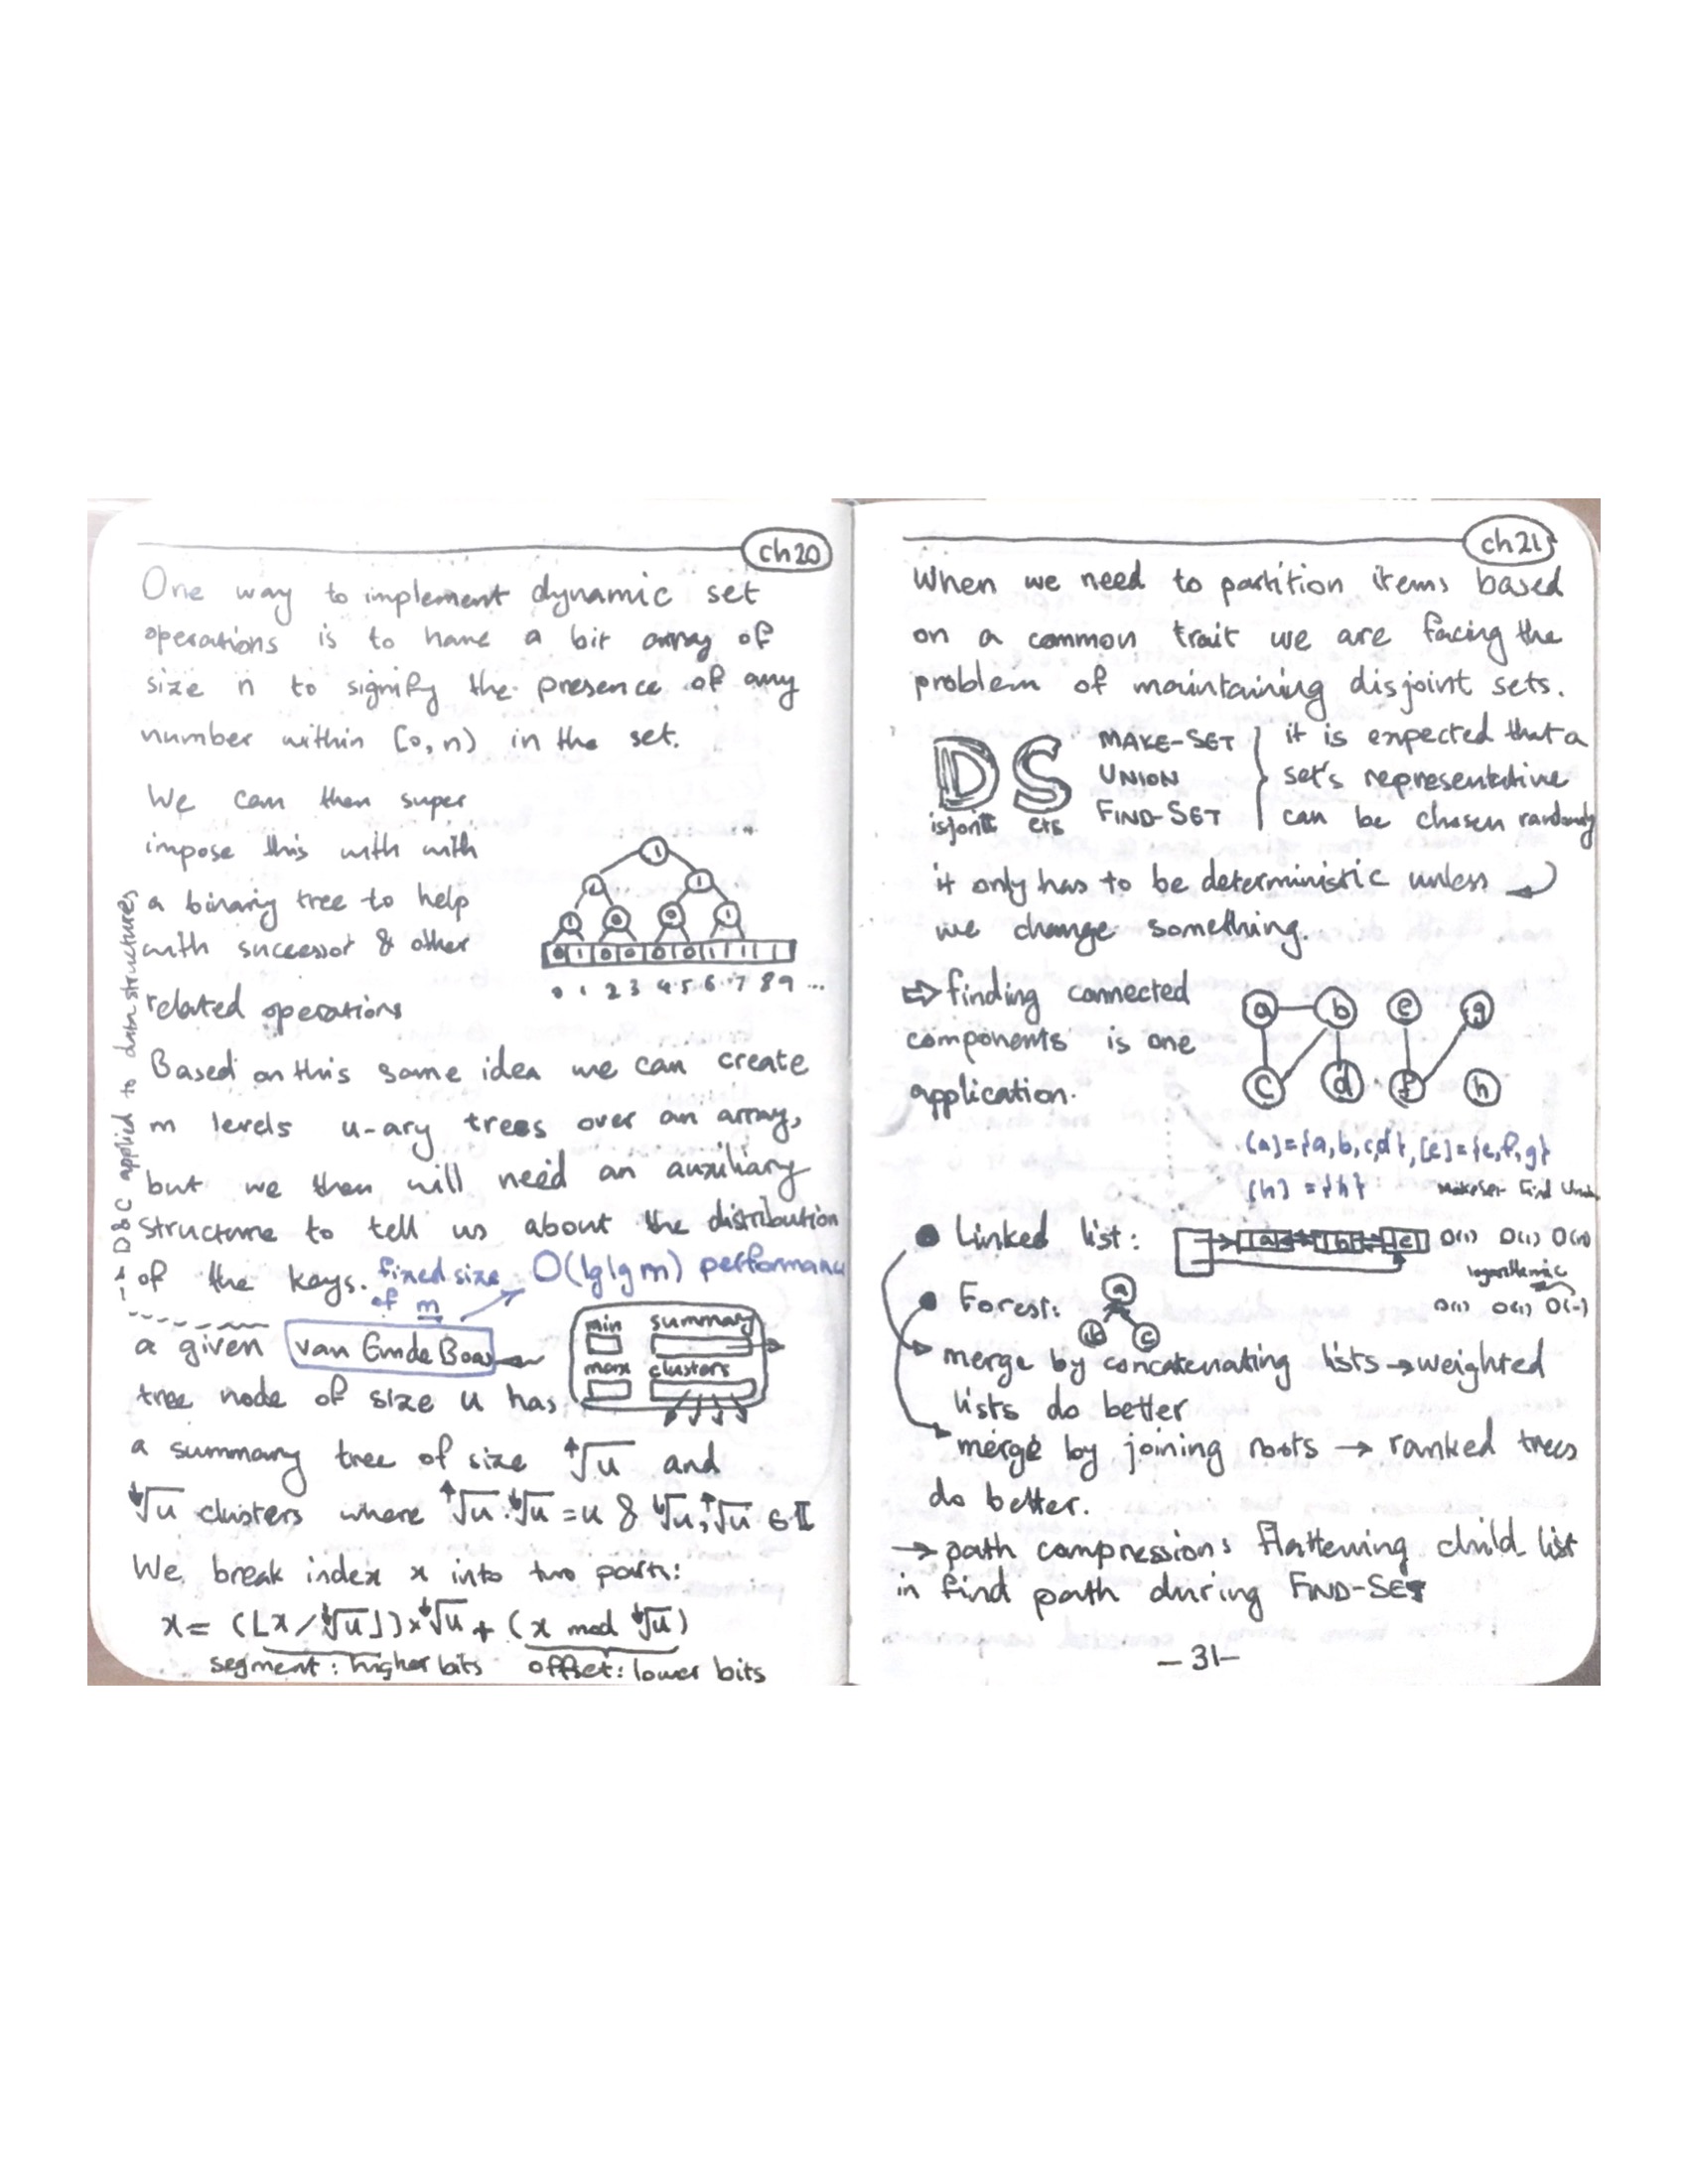 ch20
One way to implement dynamic set
operations is to have a bit array of
size n to signify the presence of any
number within [0,n) in the set.
We can then super
impose this with with
a binary tree to help
with successor & other
related operations
1
1 1
1 0 0 1
0 1 0 0 0 0 1 1 1 1
0 1 2 3 4 5 6 7 8 9 ...
Based on this same idea we can create
m levels u-ary trees over an array,
but we then will need an auxiliary
structure to tell us about the distribution
of the keys. fixed size of m O(lglg m) performance
→ D&C applied to data structures
a given van Emde Boas
tree node of size u has:
min summary
max clusters
a summary tree of size ↑√u and
↓√u clusters where ↑√u.↓√u = u & ↓√u,↑√u ∈ II
We break index x into two parts:
x = (⌊x/↓√u⌋)×↓√u + (x mod ↓√u)
segment: higher bits offset: lower bits
ch21
When we need to partition items based
on a common trait we are facing the
problem of maintaining disjoint sets.
DS
isjoint ets
MAKE-SET
UNION
FIND-SET
it is expected that a
set's representative
can be chosen randomly
it only has to be deterministic unless
we change something.
⇒ finding connected
components is one
application.
a b e g
c d f h
[a]={a,b,c,d}, [e]={e,f,g}
[h]={h}
MakeSet Find Union
• Linked list: a b c O(1) O(1) O(n)
logarithmic
• Forest: a b c O(1) O(1) O(-)
merge by concatenating lists → weighted
lists do better
merge by joining roots → ranked trees
do better.
→ path compression: flattening child list
in find path during FIND-SET
-31-